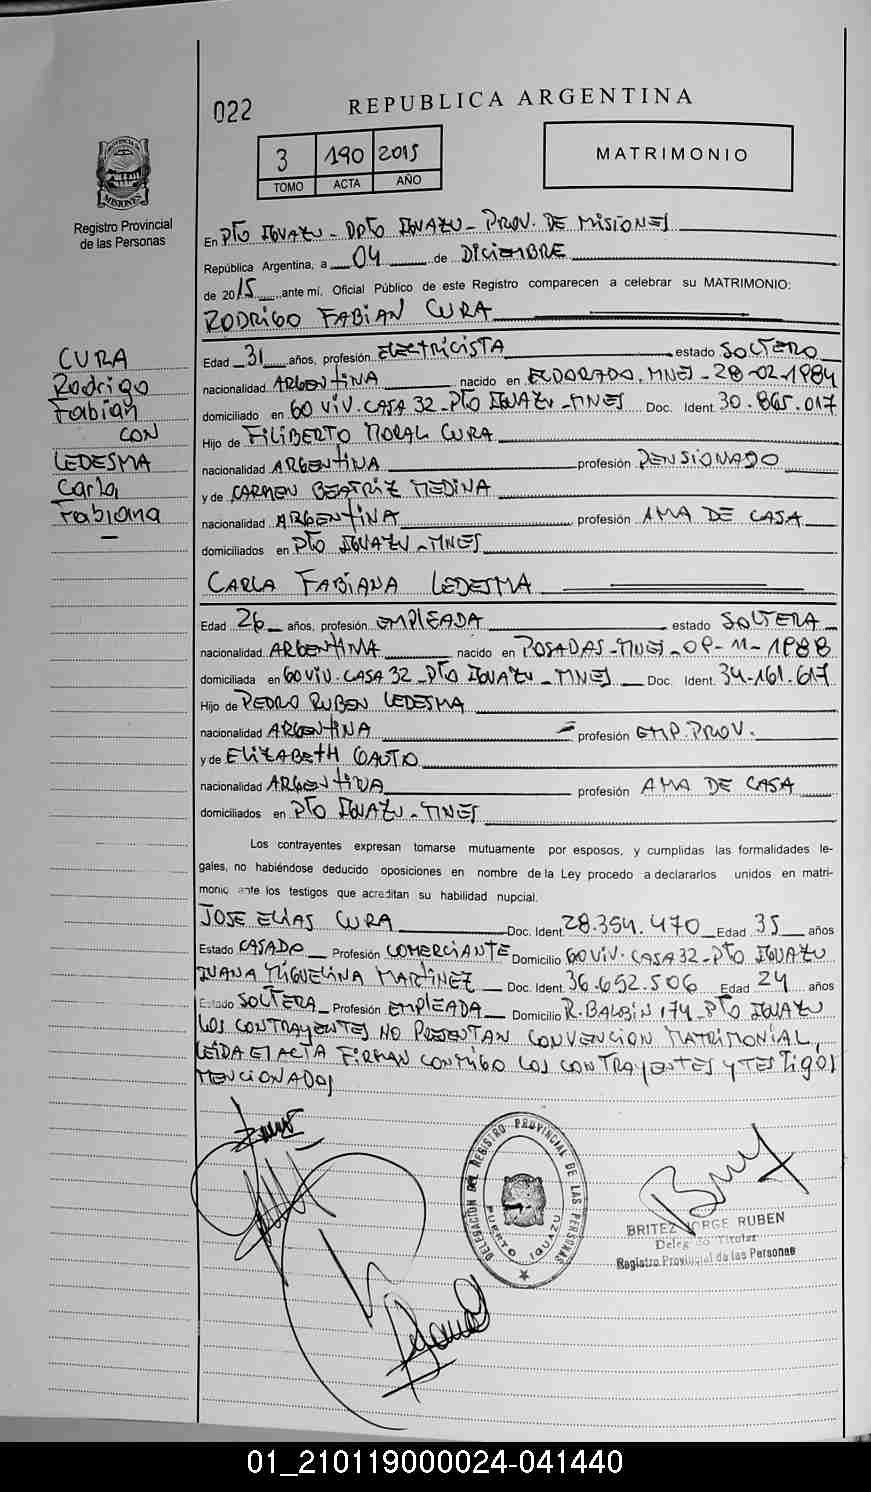 022
REPUBLICA ARGENTINA
3 190 2015
TOMO ACTA AÑO
MATRIMONIO
PROVINCIA DE
MISIONES
Registro Provincial
de las Personas
En PTO IGUAZU - DPTO IGUAZU - PROV. DE MISIONES
República Argentina, a 04 de DICIEMBRE
de 2015 ante mí, Oficial Público de este Registro comparecen a celebrar su MATRIMONIO:
RODRIGO FABIAN CURA
CURA
Rodrigo
Fabian
CON
LEDESMA
Carla
Fabiana
Edad 31 años, profesión ELECTRICISTA estado SOLTERO
nacionalidad ARGENTINA nacido en ELDORADO, MNES - 28-02-1984
domiciliado en 60 VIV. CASA 32 - PTO IGUAZU - MNES Doc. Ident. 30.865.017
Hijo de FILIBERTO MORAL CURA
nacionalidad ARGENTINA profesión PENSIONADO
y de CARMEN BEATRIZ MEDINA
nacionalidad ARGENTINA profesión AMA DE CASA
domiciliados en PTO IGUAZU - MNES
CARLA FABIANA LEDESMA
Edad 26 años, profesión EMPLEADA estado SOLTERA
nacionalidad ARGENTINA nacido en POSADAS - MNES - 09-11-1988
domiciliada en 60 VIV. CASA 32 - PTO IGUAZU - MNES Doc. Ident. 34.161.617
Hijo de PEDRO RUBEN LEDESMA
nacionalidad ARGENTINA profesión EMP. PROV.
y de ELIZABETH GAUTO
nacionalidad ARGENTINA profesión AMA DE CASA
domiciliados en PTO IGUAZU - MNES
Los contrayentes expresan tomarse mutuamente por esposos, y cumplidas las formalidades le-
gales, no habiéndose deducido oposiciones en nombre de la Ley procedo a declararlos unidos en matri-
monio ante los testigos que acreditan su habilidad nupcial.
JOSE ELIAS CURA Doc. Ident. 28.354.470 Edad 35 años
Estado CASADO Profesión COMERCIANTE Domicilio 60 VIV. CASA 32 - PTO IGUAZU
JUANA MIGUELINA MARTINEZ Doc. Ident. 36.652.506 Edad 24 años
Estado SOLTERA Profesión EMPLEADA Domicilio R. BALBIN 174 - PTO IGUAZU
LOS CONTRAYENTES NO PRESENTAN CONVENCION MATRIMONIAL,
LEIDA EL ACTA FIRMAN CONMIGO LOS CONTRAYENTES Y TESTIGOS
MENCIONADOS
DELEGACIÓN DEL REGISTRO PROVINCIAL DE LAS PERSONAS
PUERTO IGUAZU
BRITEZ JORGE RUBEN
Delegado Titular
Registro Provincial de las Personas
01_210119000024-041440